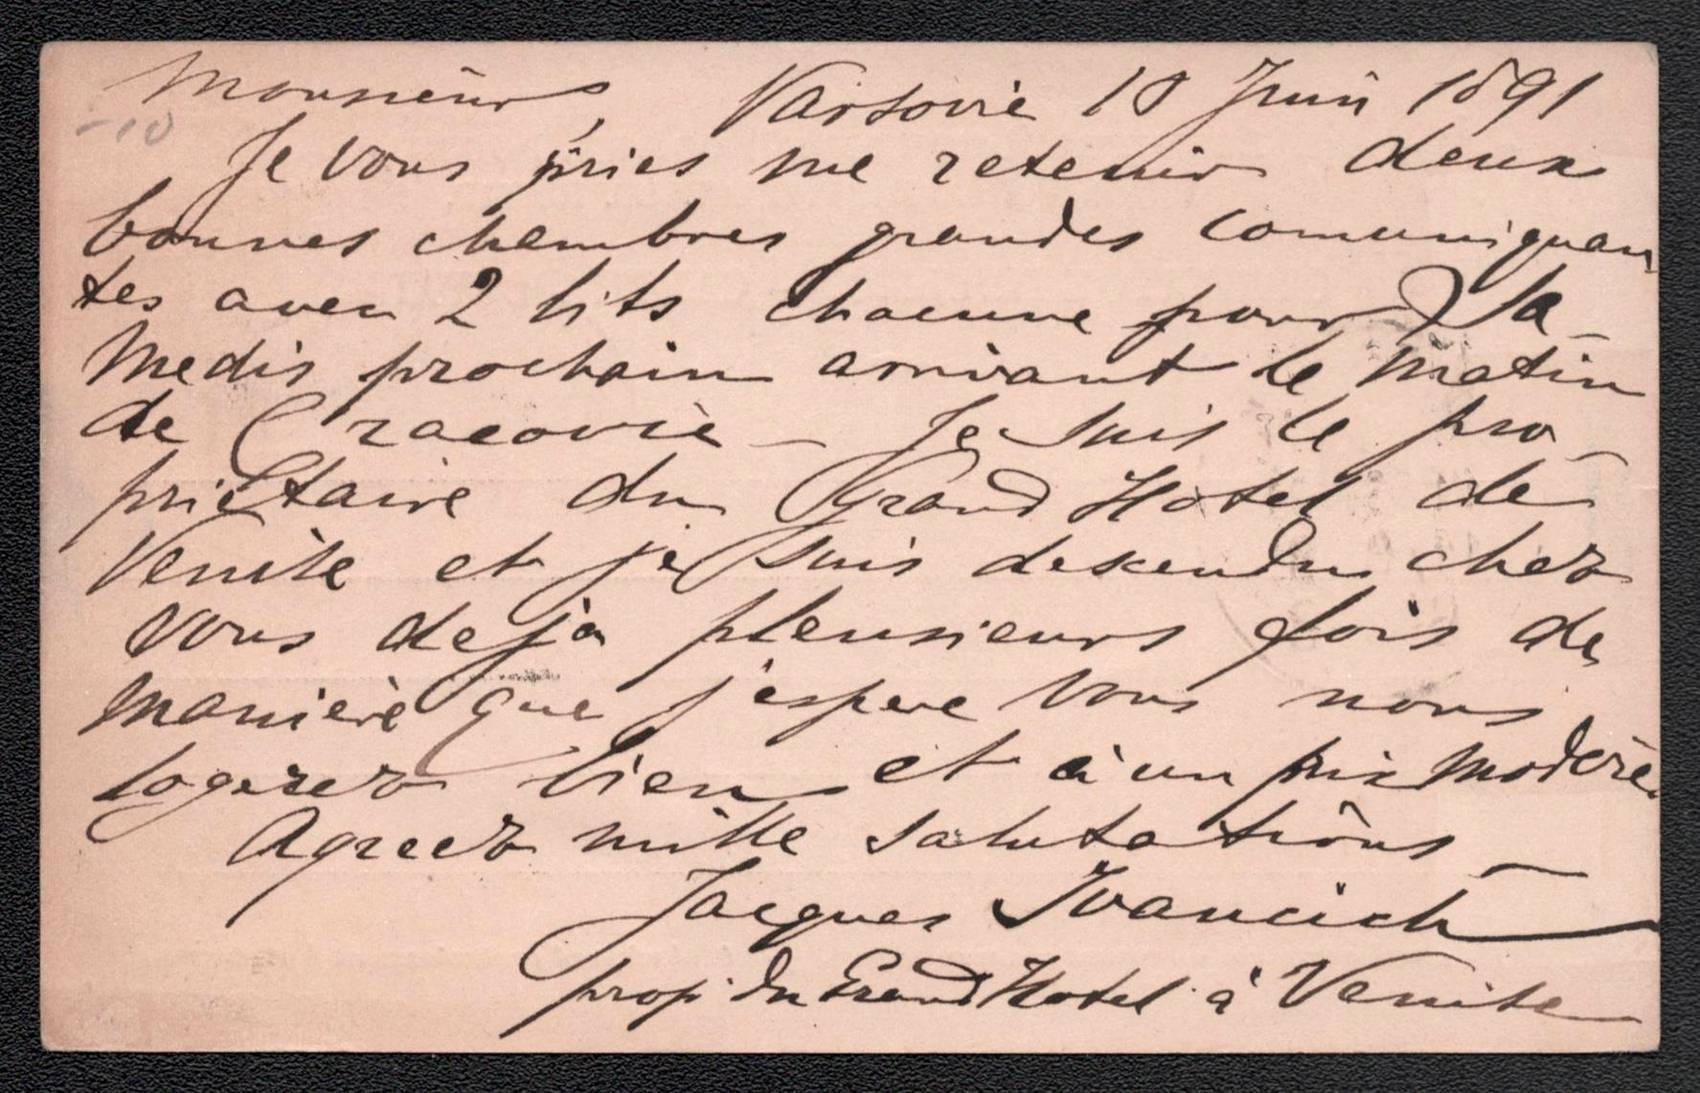 Monsieur, Varsovie 18 Juin 1891
-10
Je vous pries me retenir deux
bonnes chambres grandes comuniquan
tes avec 2 lits chacune pour Sa-
medis prochain arrivant le matin
de Cracovie - Je suis le pro-
priétaire du Grand Hotel de
Venise et je suis descendu chez
vous dejà plensieurs fois de
manière que j'espere vous nous
logerez bien et à un prix modéré.
Agreez mille salutations -
Jacques Ivancich
prop. du Grand Hotel à Venise